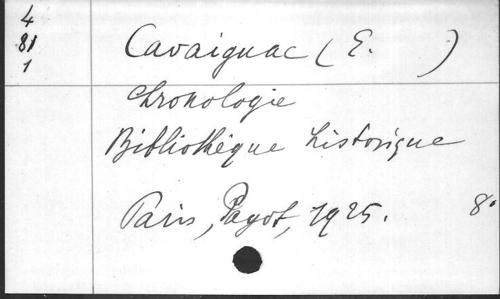 4
81
1
Cavaignac (E. )
Chronologie
Bibliothèque historique
Paris, Payot, 1925.
8°